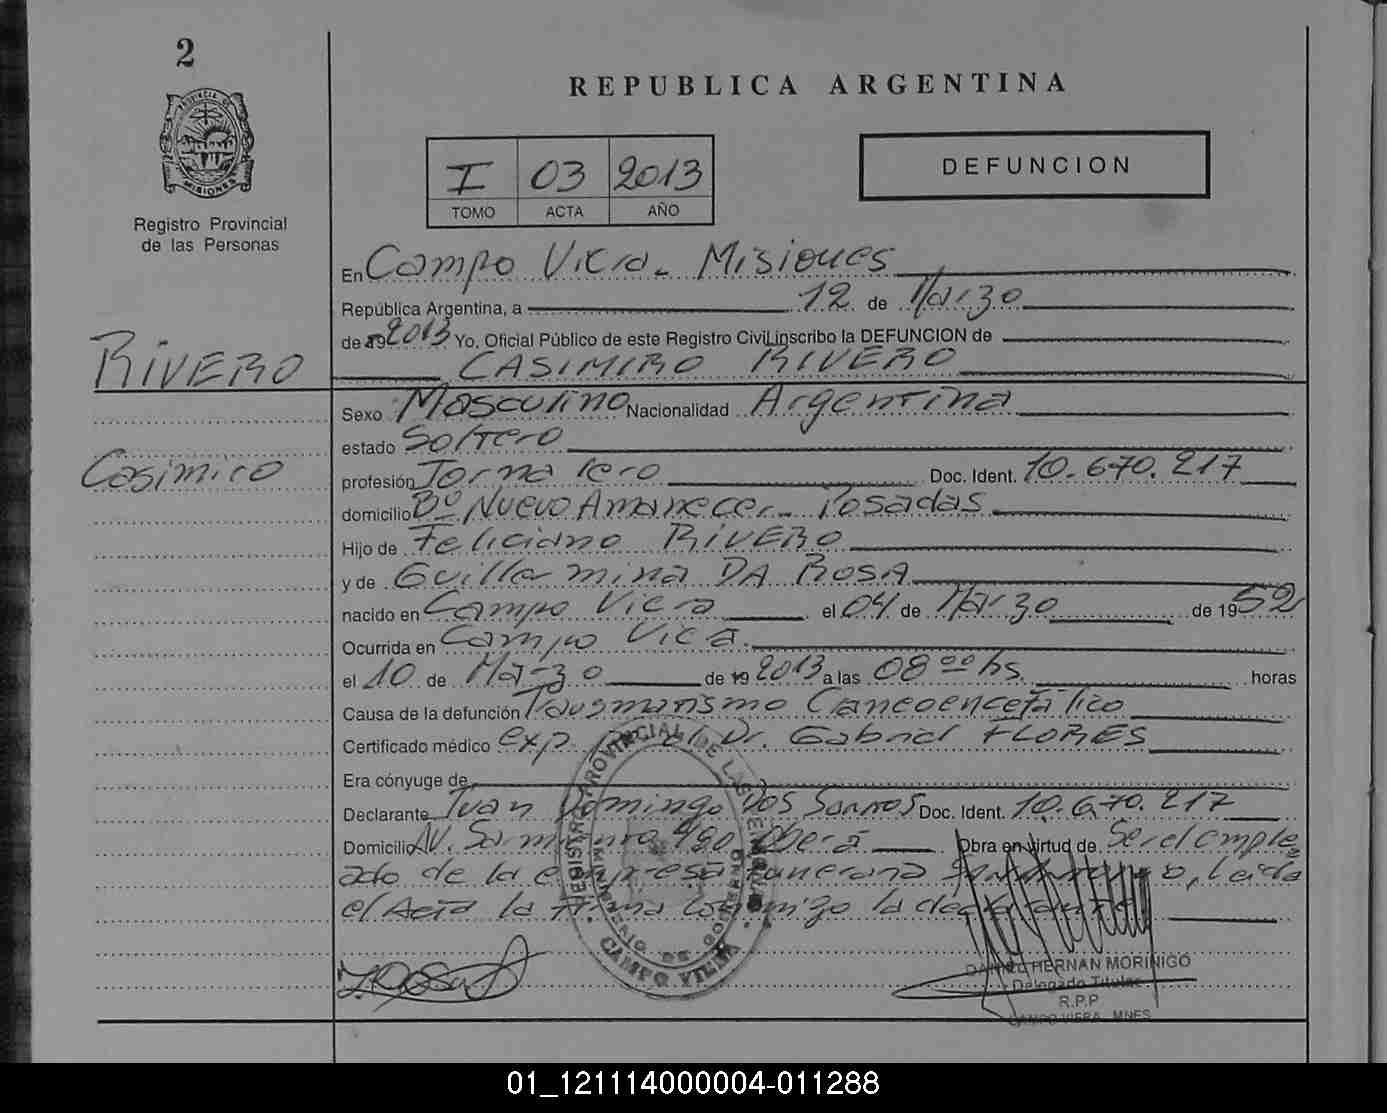 2
REPUBLICA ARGENTINA
PROVINCIA DE
MISIONES
Registro Provincial
de las Personas
I 03 2013
TOMO ACTA AÑO
DEFUNCION
RIVERO
Casimiro
En Campo Viera - Misiones
República Argentina, a 12 de Marzo
de 19 2013 Yo, Oficial Público de este Registro Civil inscribo la DEFUNCION de
CASIMIRO RIVERO
Sexo Masculino Nacionalidad Argentina
estado Soltero
profesión Jornalero Doc. Ident. 10.670.217
domicilio Bº Nuevo Amanecer - Posadas
Hijo de Feliciano RIVERO
y de Guillermina DA ROSA
nacido en Campo Viera el 04 de Marzo de 1952
Ocurrida en Campo Viera
el 10 de Marzo de 19 2013 a las 08 00 hs. horas
Causa de la defunción Traumatismo Craneoencefálico
Certificado médico exp. por el Dr. Gabriel FLORES
Era cónyuge de
Declarante Juan Domingo Dos Santos Doc. Ident. 10.670.217
Domicilio AV. Sarmiento 490 Oberá Obra en virtud de Ser el emple
ado de la empresa funeraria Leída
el Acta la firma conmigo la declarante
REGISTRO PROVINCIAL DE LAS PERSONAS
MINISTERIO DE GOBIERNO
CAMPO VIERA
DANIEL HERNAN MORINIGO
Delegado Titular
R.P.P.
CAMPO VIERA - MNES
01_121114000004-011288